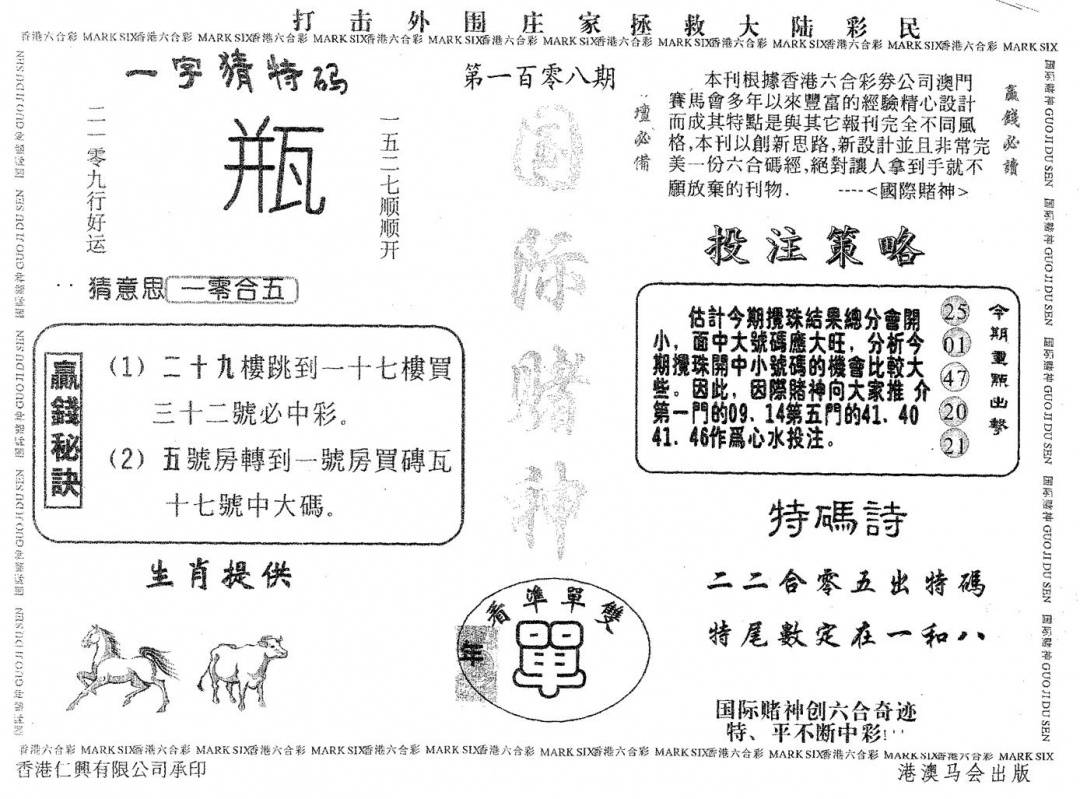 打击外围庄家拯救大陆彩民
香港六合彩 MARK SIX香港六合彩 MARK SIX香港六合彩 MARK SIX香港六合彩 MARK SIX香港六合彩 MARK SIX香港六合彩 MARK SIX香港六合彩 MARK SIX香港六合彩 MARK SIX香港六合彩 MARK SIX
一字猜特码
二一零九行好运
瓶
一五二七顺顺开
猜意思 一零合五
第一百零八期
国际赌神
壇必備
本刊根據香港六合彩券公司澳門
賽馬會多年以來豐富的經驗精心設計
而成其特點是與其它報刊完全不同風
格,本刊以創新思路,新設計並且非常完
美一份六合碼經,絕對讓人拿到手就不
願放棄的刊物. ----<國際賭神>
贏錢必讀
投注策略
估計今期攪珠結果總分會開
小，面中大號碼應大旺，分析今
期攪珠開中小號碼的機會比較大
些。因此，因際賭神向大家推 介
第一門的09、14第五門的41、40
41、46作爲心水投注。
25
01
47
20
21
今期重瓶出擊
贏錢秘訣
(1) 二十九樓跳到一十七樓買
三十二號必中彩。
(2) 五號房轉到一號房買磚瓦
十七號中大碼。
生肖提供
看準單雙
年
單
特碼詩
二二合零五出特碼
特尾數定在一和八
国际赌神创六合奇迹
特、平不断中彩!
国际赌神 GUO JI DU SEN 国际赌神 GUO JI DU SEN 国际赌神 GUO JI DU SEN 国际赌神 GUO JI DU SEN 国际赌神 GUO JI DU SEN
香港六合彩 MARK SIX香港六合彩 MARK SIX香港六合彩 MARK SIX香港六合彩 MARK SIX香港六合彩 MARK SIX香港六合彩 MARK SIX香港六合彩 MARK SIX香港六合彩 MARK SIX香港六合彩 MARK SIX
香港仁興有限公司承印
港澳马会出版